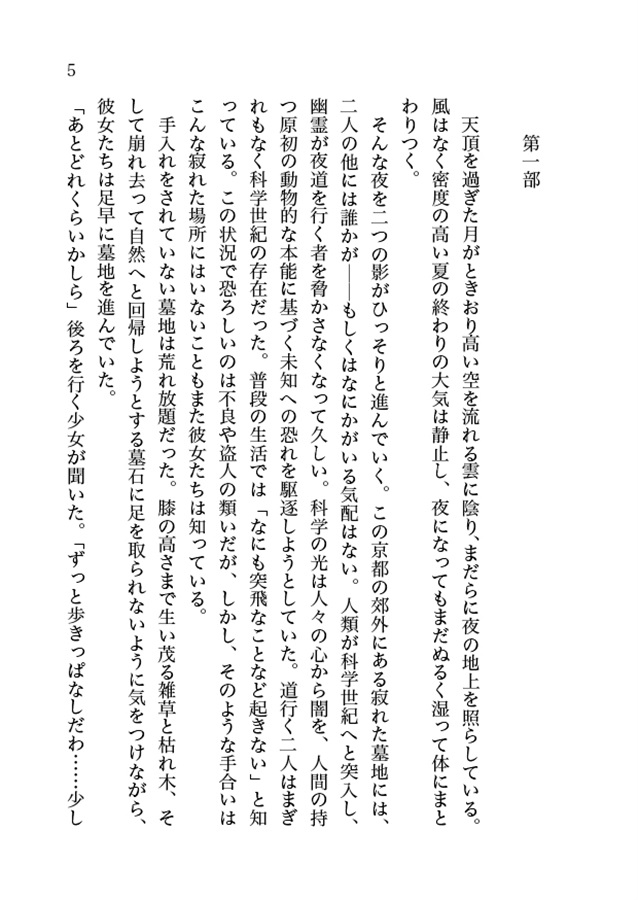 第一部
天頂を過ぎた月がときおり高い空を流れる雲に陰り、まだらに夜の地上を照らしている。
風はなく密度の高い夏の終わりの大気は静止し、夜になってもまだぬるく湿って体にまと
わりつく。
そんな夜を二つの影がひっそりと進んでいく。この京都の郊外にある寂れた墓地には、
二人の他には誰かが――もしくはなにかがいる気配はない。人類が科学世紀へと突入し、
幽霊が夜道を行く者を脅かさなくなって久しい。科学の光は人々の心から闇を、人間の持
つ原初の動物的な本能に基づく未知への恐れを駆逐しようとしていた。道行く二人はまぎ
れもなく科学世紀の存在だった。普段の生活では「なにも突飛なことなど起きない」と知
っている。この状況で恐ろしいのは不良や盗人の類いだが、しかし、そのような手合いは
こんな寂れた場所にはいないこともまた彼女たちは知っている。
手入れをされていない墓地は荒れ放題だった。膝の高さまで生い茂る雑草と枯れ木、そ
して崩れ去って自然へと回帰しようとする墓石に足を取られないように気をつけながら、
彼女たちは足早に墓地を進んでいた。
「あとどれくらいかしら」後ろを行く少女が聞いた。「ずっと歩きっぱなしだわ……少し
5